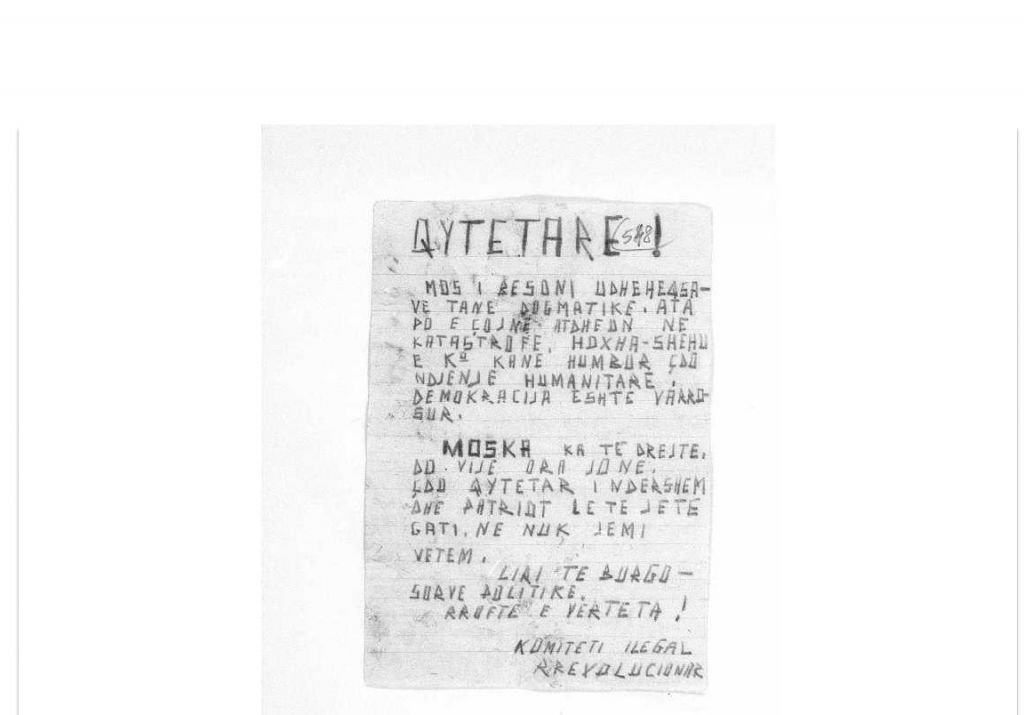 QYTETARE !
548
MOS I BESONI UDHEHEQSA-
VE TANE DOGMATIKE. ATA
DO E ÇOJNE ATDHEUN NE
KATASTROFE. HOXHA-SHEHU
E Kº KANE HUMBUR ÇDO
NDJENJE HUMANITARE.
DEMOKRACIJA ESHTE VARRO-
SUR.
MOSKA KA TE DREJTE.
DO VIJE ORA JONE.
ÇDO QYTETAR I NDERSHEM
DHE PATRIOT LE TE JETE
GATI. NE NUK JEMI
VETEM.
LIRI TE BURGO-
SURVE POLITIKE.
RROFTE E VERTETA !
KOMITETI ILEGAL
RREVOLUCIONAR